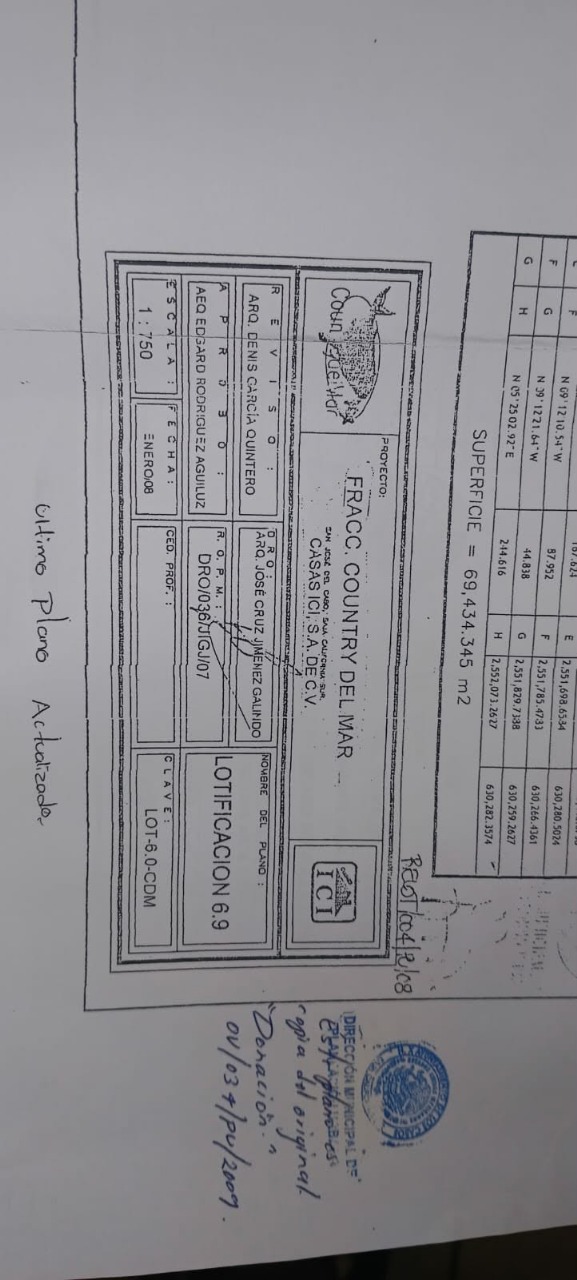 F N 09°12'10.54"W 187.624 E 2,551,698.6534 630,280.5024
F G N 39°12'21.64"W 87.952 F 2,551,785.4733 630,266.4361
G H N 05°25'02.92"E 44.838 G 2,551,829.7388 630,259.2627
244.616 H 2,552,073.2627 630,282.3574
SUPERFICIE = 69,434.345 m2
RELOT/004/PU/08
PROYECTO:
FRACC. COUNTRY DEL MAR
SAN JOSE DEL CABO, BAJA CALIFORNIA SUR.
CASAS ICI, S.A. DE C.V.
ICI
REVISO:
ARQ. DENIS GARCÍA QUINTERO
D R O :
ARQ. JOSÉ CRUZ JIMENEZ GALINDO
NOMBRE DEL PLANO :
LOTIFICACION 6.9
APROBO:
AEQ EDGARD RODRIGUEZ AGUILUZ
R. O. P. M. :
DRO/036/JIGJ/07
ESCALA :
1 : 750
FECHA:
ENERO/08
CED. PROF. :
CLAVE:
LOT-6.0-CDM
ultimo plano Actualizado
DIRECCIÓN MUNICIPAL DE
Este plano es
copia del original
"Donación"
OU/034/PU/2009.